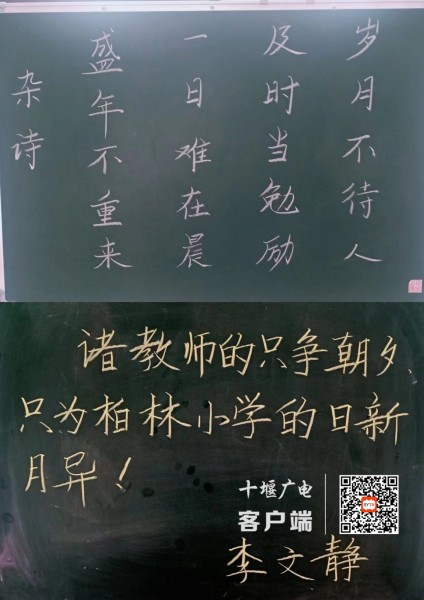 杂诗
盛年不重来
一日难在晨
及时当勉励
岁月不待人
诸教师的只争朝夕、
只为柏林小学的日新
月异！
十堰广电
客户端
李文静